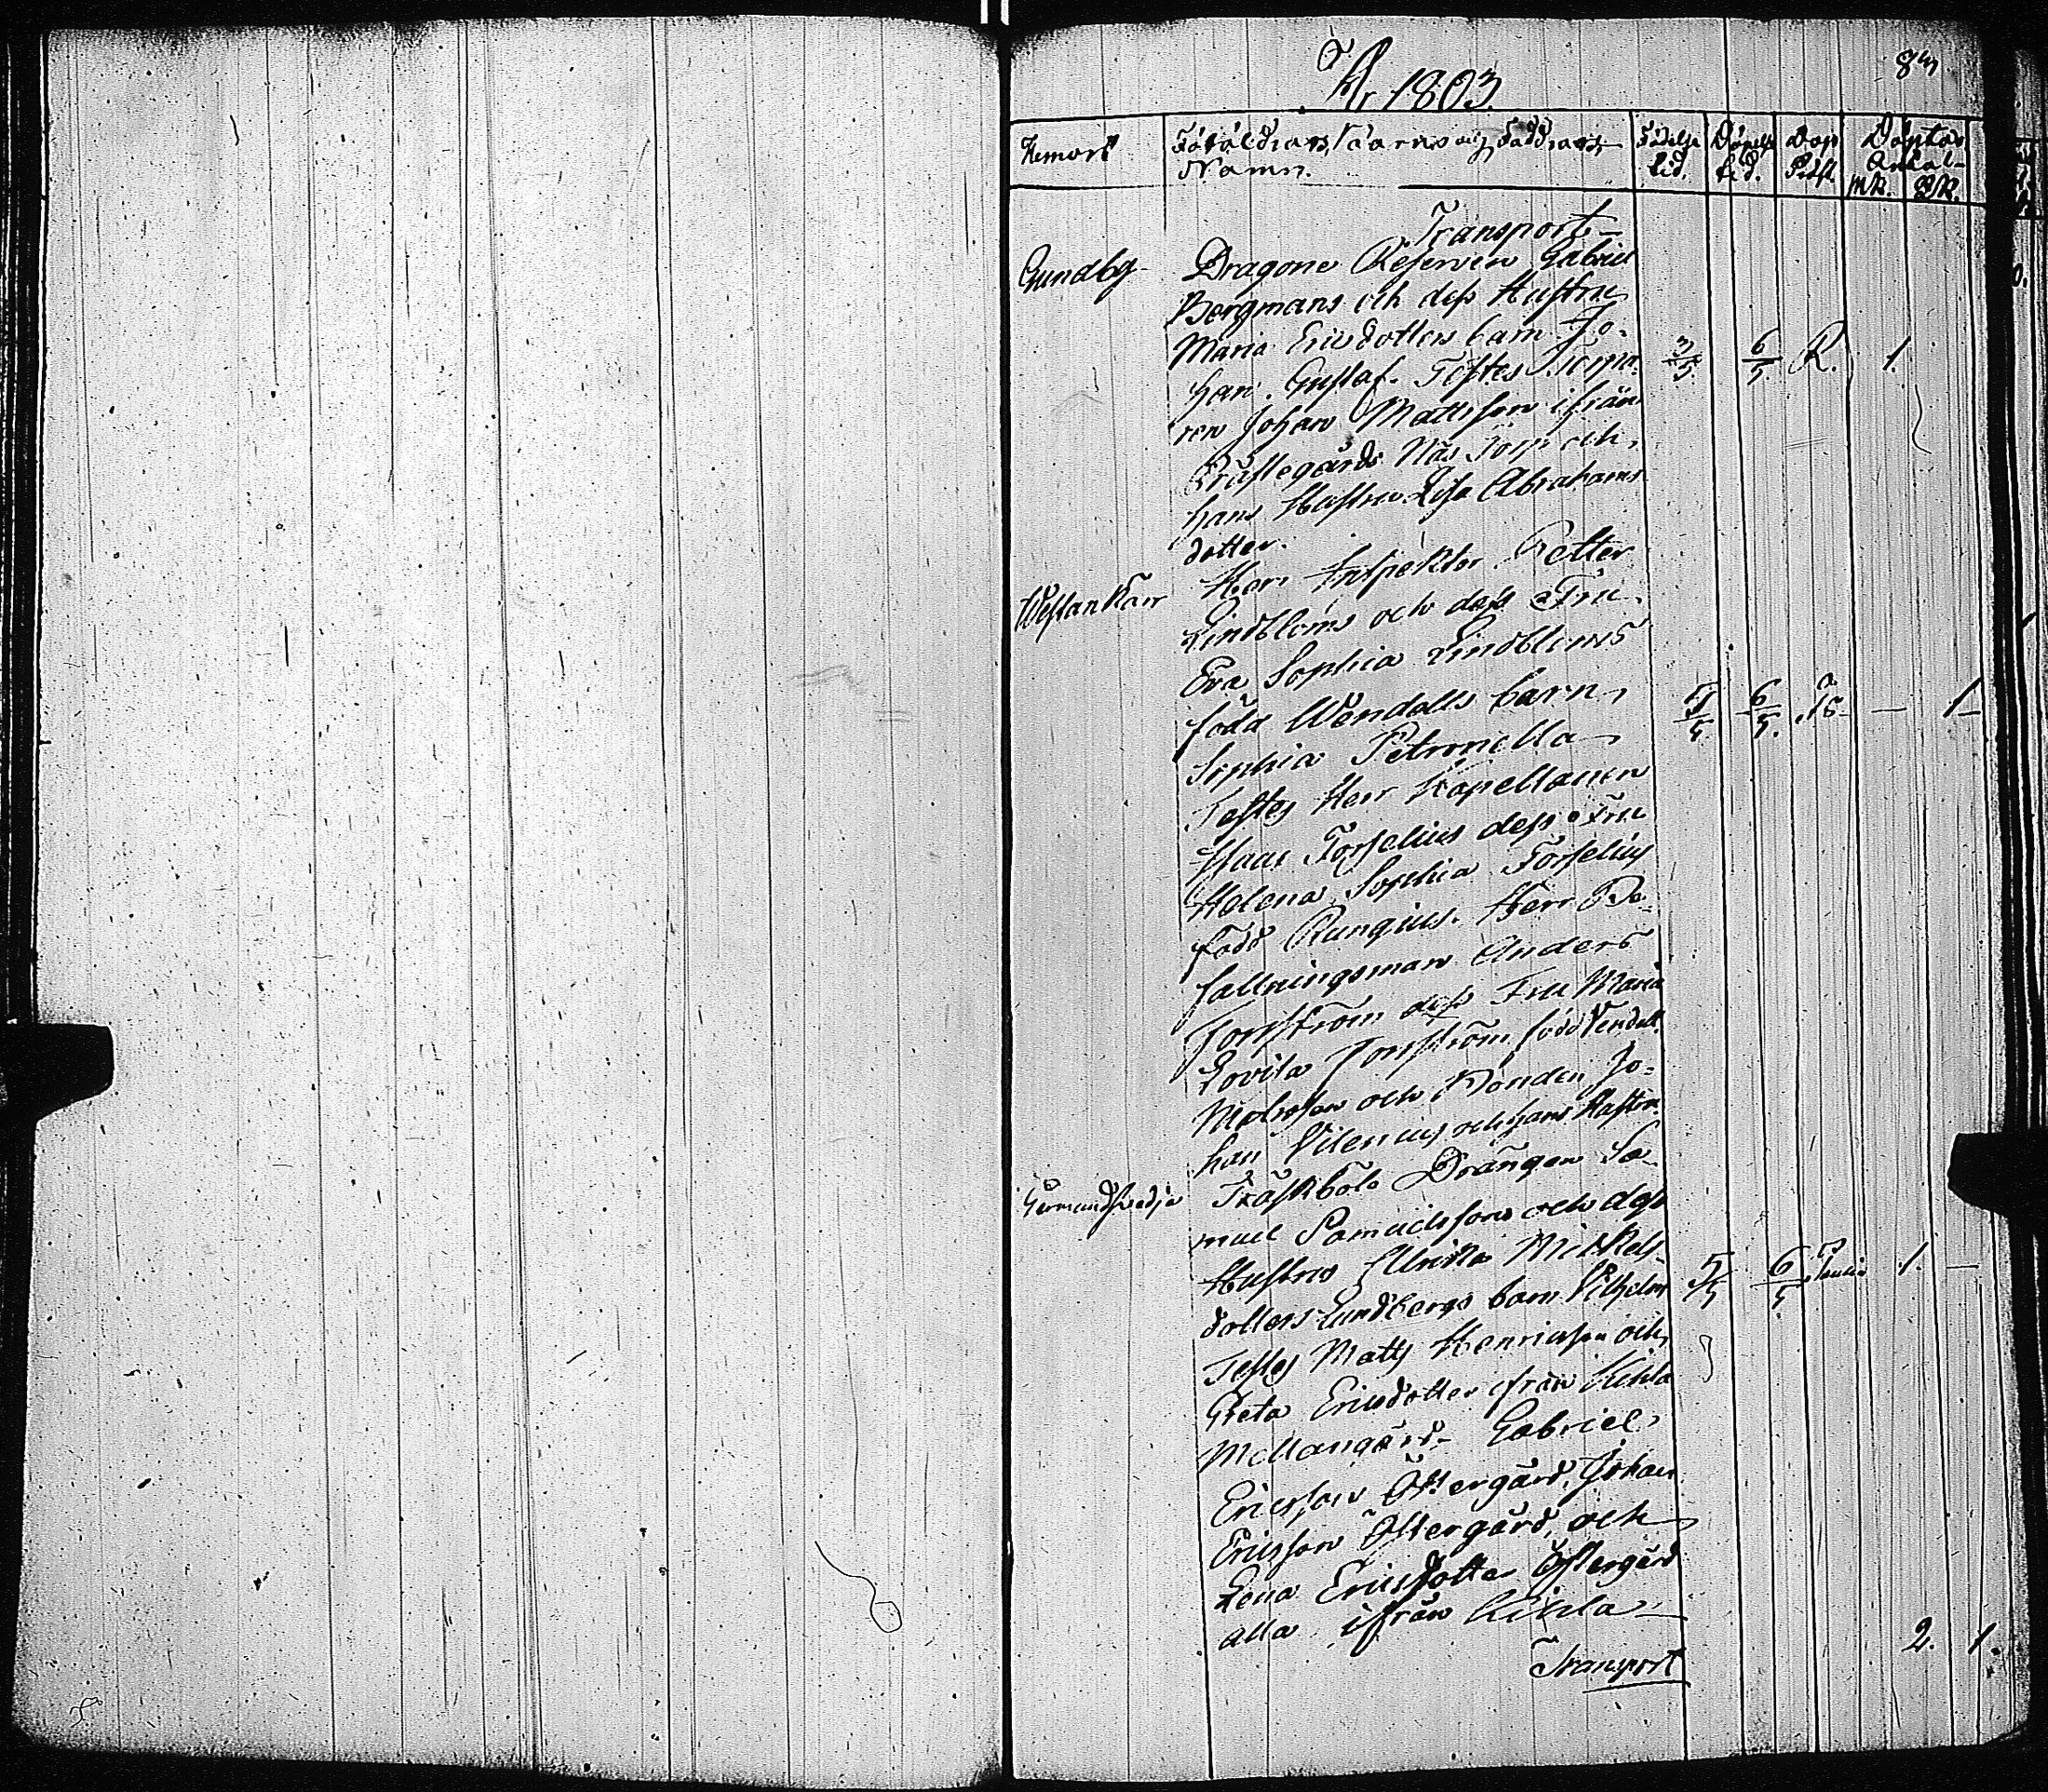 År 1803.
Hemort Föräldrars, Barns och Faddrars Namn. Födelse tid. Döpelse tid. Dop Präst. Döptas Antal MK. QK.
Transport
Gundby Dragone Reserven Gabriel
Bergmans och dess Hustru
Maria Ericsdotters barn Jo-
han Gustaf. Testes Torpa- 3/5. 6/5. R. 1.
ren Johan Mattsson ifrån
Prästegårds Näs Torp och
hans Hustru Lisa Abrahams
dotter.
Westankärr Herr Inspektor Petter
Lindbloms och dess Fru
Eva Sophia Lindbloms
född Wendells barn
Sophia Petronella 5/5. 6/5. — 1
Testes Herr Kapellanen
Isaac Forselius dess Fru
Helena Sophia Forselius
född Rungius. Herr Be-
fallningsman Anders
Forsström dess Fru Maria
Lovisa Forsström född Vendell.
och Bonden Jo-
han och hans Hustru
Germundsvedja Träskböle Drängen Sa-
muel Samuelssons och dess
Hustru Ulrika Mickels-
dotters Lundbergs barn Vilhelm 5/5 6/5 1. —
Testes Matts Henricsson och
Greta Ericsdotter ifrån Kihla
Mellangård Gabriel
Ericsson Östergård, Johan
Ericsson Östergård, och
Lena Ericsdotter Östergård
alla ifrån Kihla
Transport 2. 1.